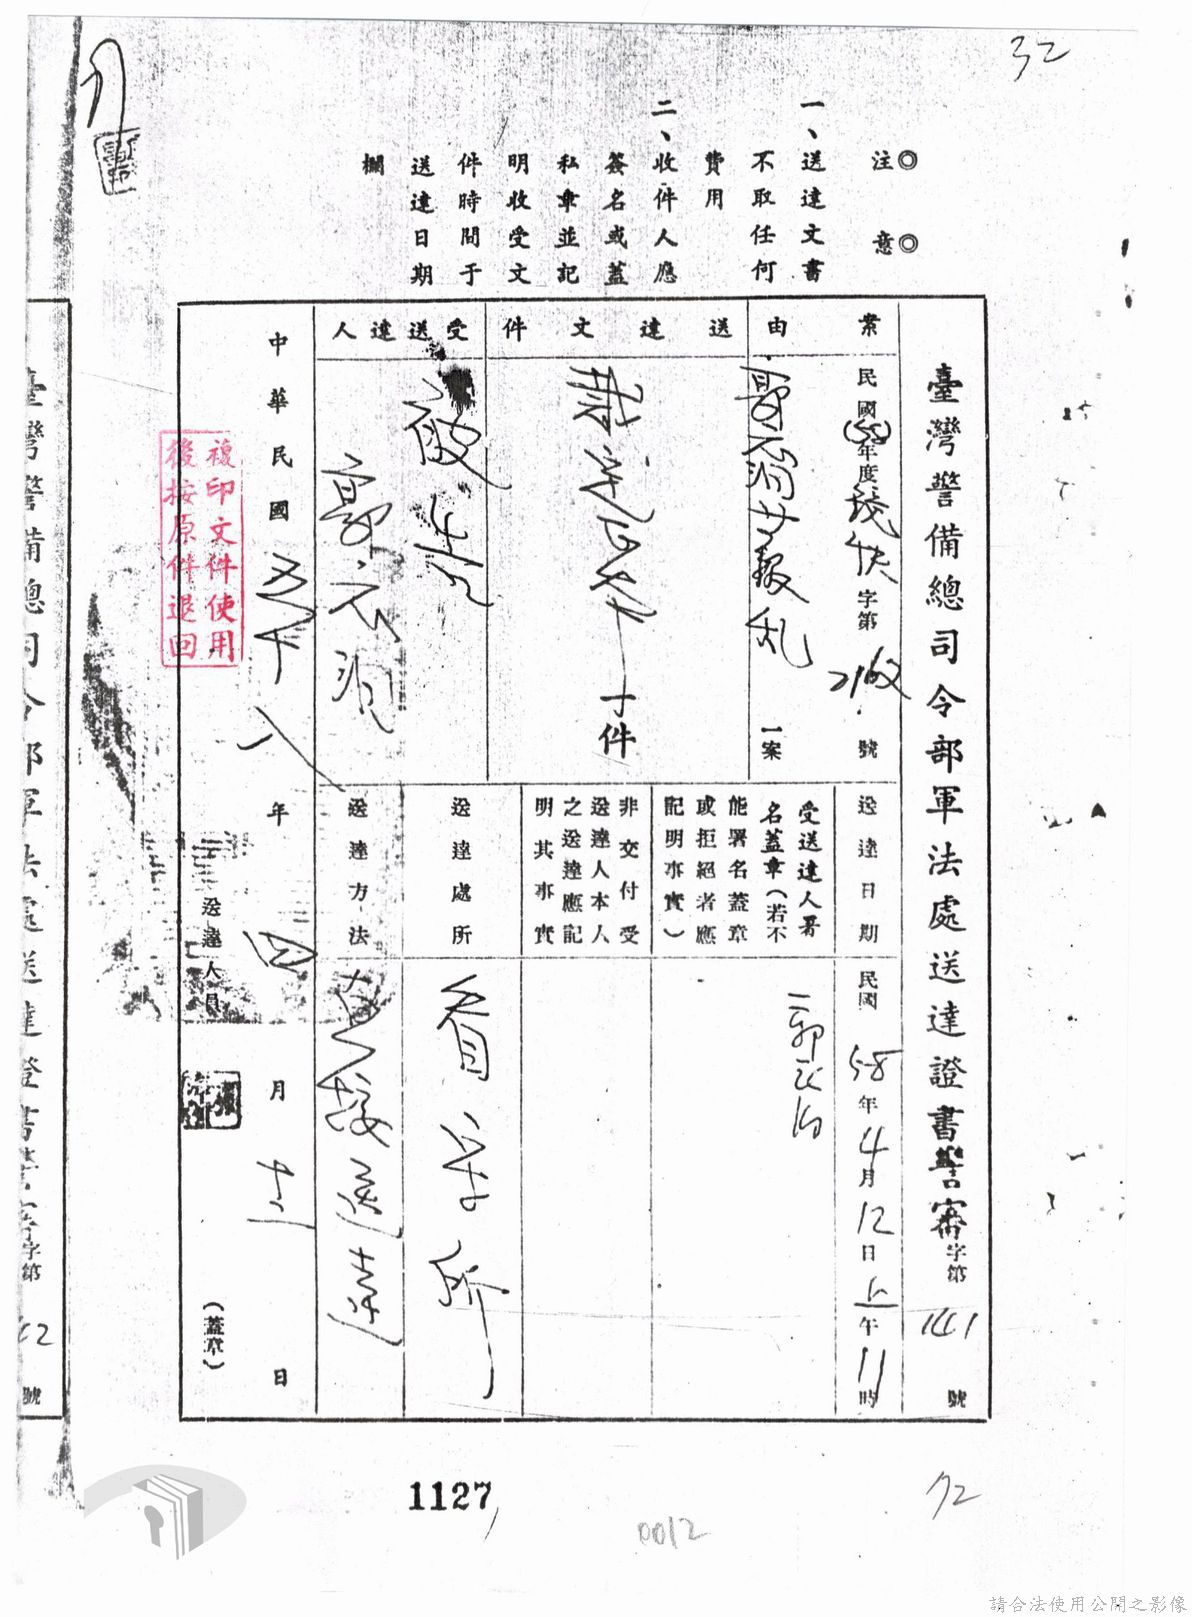 32
◎注意◎
一、送達文書
不取任何
費用
二、收件人應
簽名或蓋
私章並記
明收受文
件時間于
送達日期
欄
臺灣警備總司令部軍法處送達證書警審字第141號
案由
民國(58)年度 字第 號
叛亂一案
送達文件
一件
受送達人
被告
送達日期
民國58年4月12日上午11時
受送達人署
名蓋章(若不
能署名蓋章
或拒絕者應
記明事實)
非交付受
送達人本人
之送達應記
明其事實
送達處所
看守所
送達方法
直接送達
中華民國五十八年四月十二日
送達人員
(蓋章)
複印文件使用
後按原件退回
臺灣警備總司令部軍法處送達證書警審字第 號
1127
0012
72
請合法使用公開之影像